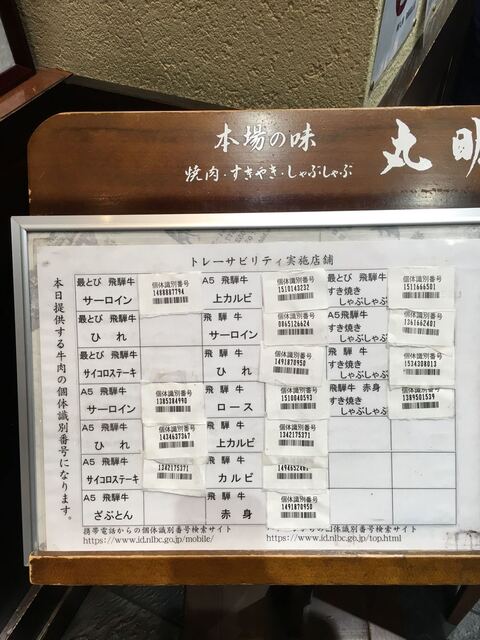 本場の味
焼肉・すきやき・しゃぶしゃぶ
丸明
トレーサビリティ実施店舗
本日提供する牛肉の個体識別番号になります。
最とび 飛騨牛
サーロイン
個体識別番号
1498887794
最とび 飛騨牛
ひれ
最とび 飛騨牛
サイコロステーキ
A5 飛騨牛
サーロイン
個体識別番号
1385304990
A5 飛騨牛
ひれ
個体識別番号
1434637367
A5 飛騨牛
サイコロステーキ
1342175371
A5 飛騨牛
ざぶとん
A5 飛騨牛
上カルビ
個体識別番号
1510143232
飛騨牛
サーロイン
個体識別番号
0865126624
飛騨牛
ひれ
個体識別番号
1491870950
飛騨牛
ロース
個体識別番号
1510040593
飛騨牛
上カルビ
個体識別番号
1342175371
飛騨牛
カルビ
飛騨牛
赤身
個体識別番号
1491870950
最とび 飛騨牛
すき焼き
しゃぶしゃぶ
個体識別番号
1511666501
A5飛騨牛
すき焼き
しゃぶしゃぶ
個体識別番号
1361662401
飛騨牛
すき焼き
しゃぶしゃぶ
個体識別番号
1534308013
飛騨牛 赤身
すき焼き
しゃぶしゃぶ
個体識別番号
1389501539
携帯電話からの個体識別番号検索サイト
https://www.id.nlbc.go.jp/mobile/
からの個体識別番号検索サイト
https://www.id.nlbc.go.jp/top.html